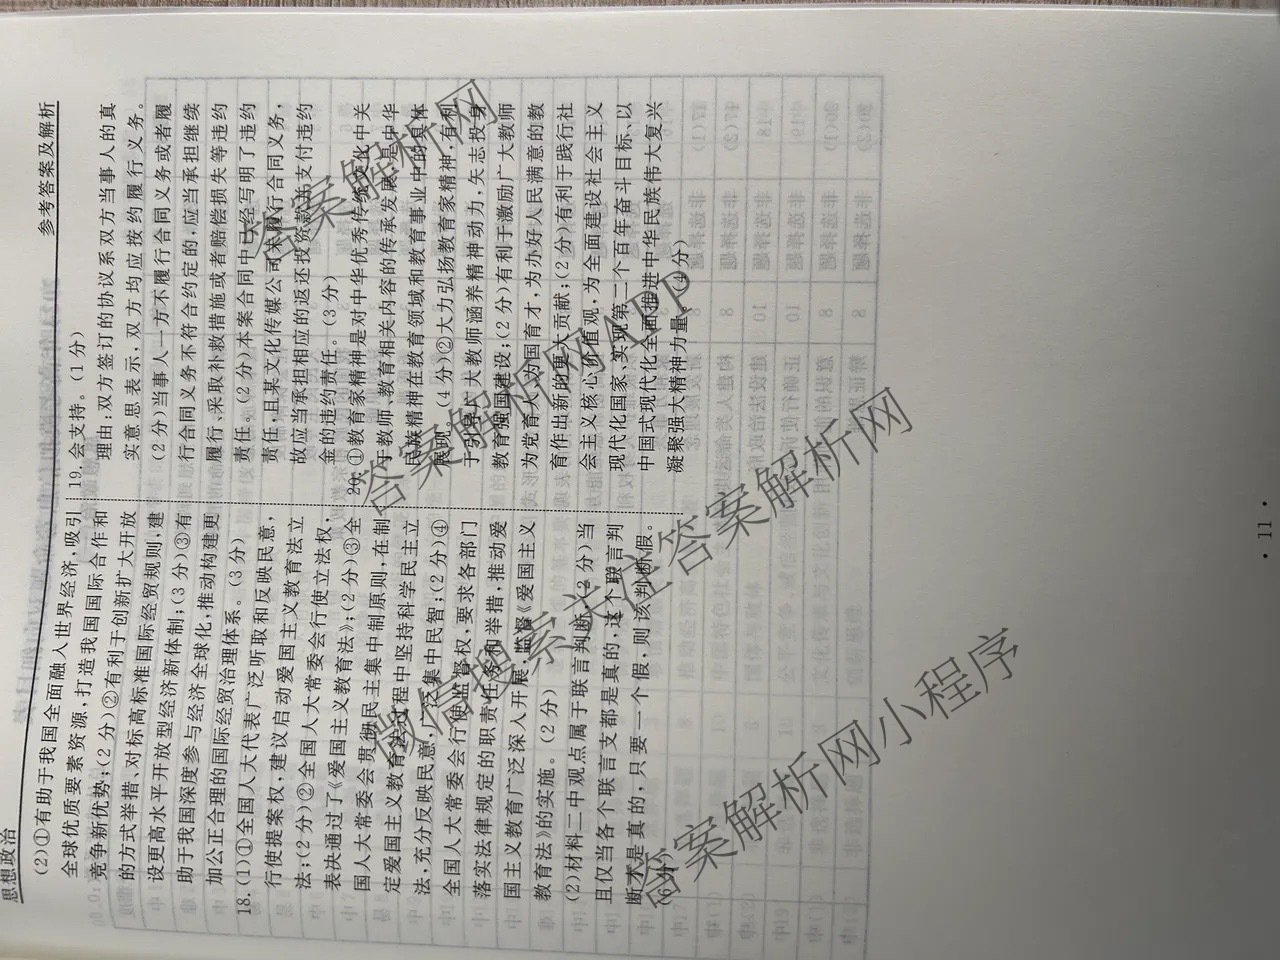 思想政治
参考答案及解析
(2)①有助于我国全面融入世界经济,吸引
全球优质要素资源,打造我国国际合作和
竞争新优势;(2分)②有利于创新扩大开放
的方式举措、对标高标准国际经贸规则,建
设更高水平开放型经济新体制;(3分)③有
助于我国深度参与经济全球化,推动构建更
加公正合理的国际经贸治理体系。(3分)
18.(1)①全国人大代表广泛听取和反映民意,
行使提案权,建议启动爱国主义教育法立
法;(2分)②全国人大常委会行使立法权,
表决通过了《爱国主义教育法》;(2分)③全
国人大常委会贯彻民主集中制原则,在制
定爱国主义教育法过程中坚持科学民主立
法,充分反映民意,广泛集中民智;(2分)④
全国人大常委会行使监督权,要求各部门
落实法律规定的职责任务和举措,推动爱
国主义教育广泛深入开展,监督《爱国主义
教育法》的实施。(2分)
(2)材料二中观点属于联言判断,(2分)当
且仅当各个联言支都是真的,这个联言判
断才是真的,只要一个假,则该判断假。
(6分)
19.会支持。(1分)
理由:双方签订的协议系双方当事人的真
实意思表示,双方均应按约履行义务。
(2分)当事人一方不履行合同义务或者履
行合同义务不符合约定的,应当承担继续
履行、采取补救措施或者赔偿损失等违约
责任。(2分)本案合同中已经写明了违约
责任,且某文化传媒公司未履行合同义务,
故应当承担相应的返还投资款及支付违约
金的违约责任。(3分)
20.①教育家精神是对中华优秀传统文化中关
于教师、教育相关内容的传承发展,是中华
民族精神在教育领域和教育事业中的具体
展现。(4分)②大力弘扬教育家精神,有利
于引导广大教师涵养精神动力,矢志投身
教育强国建设;(2分)有利于激励广大教师
为党育人、为国育才,为办好人民满意的教
育作出新的更大贡献;(2分)有利于践行社
会主义核心价值观,为全面建设社会主义
现代化国家、实现第二个百年奋斗目标、以
中国式现代化全面推进中华民族伟大复兴
凝聚强大精神力量。(4分)
· 11 ·
答案解析网
答案解析网APP
微信搜索关注答案解析网
答案解析网小程序